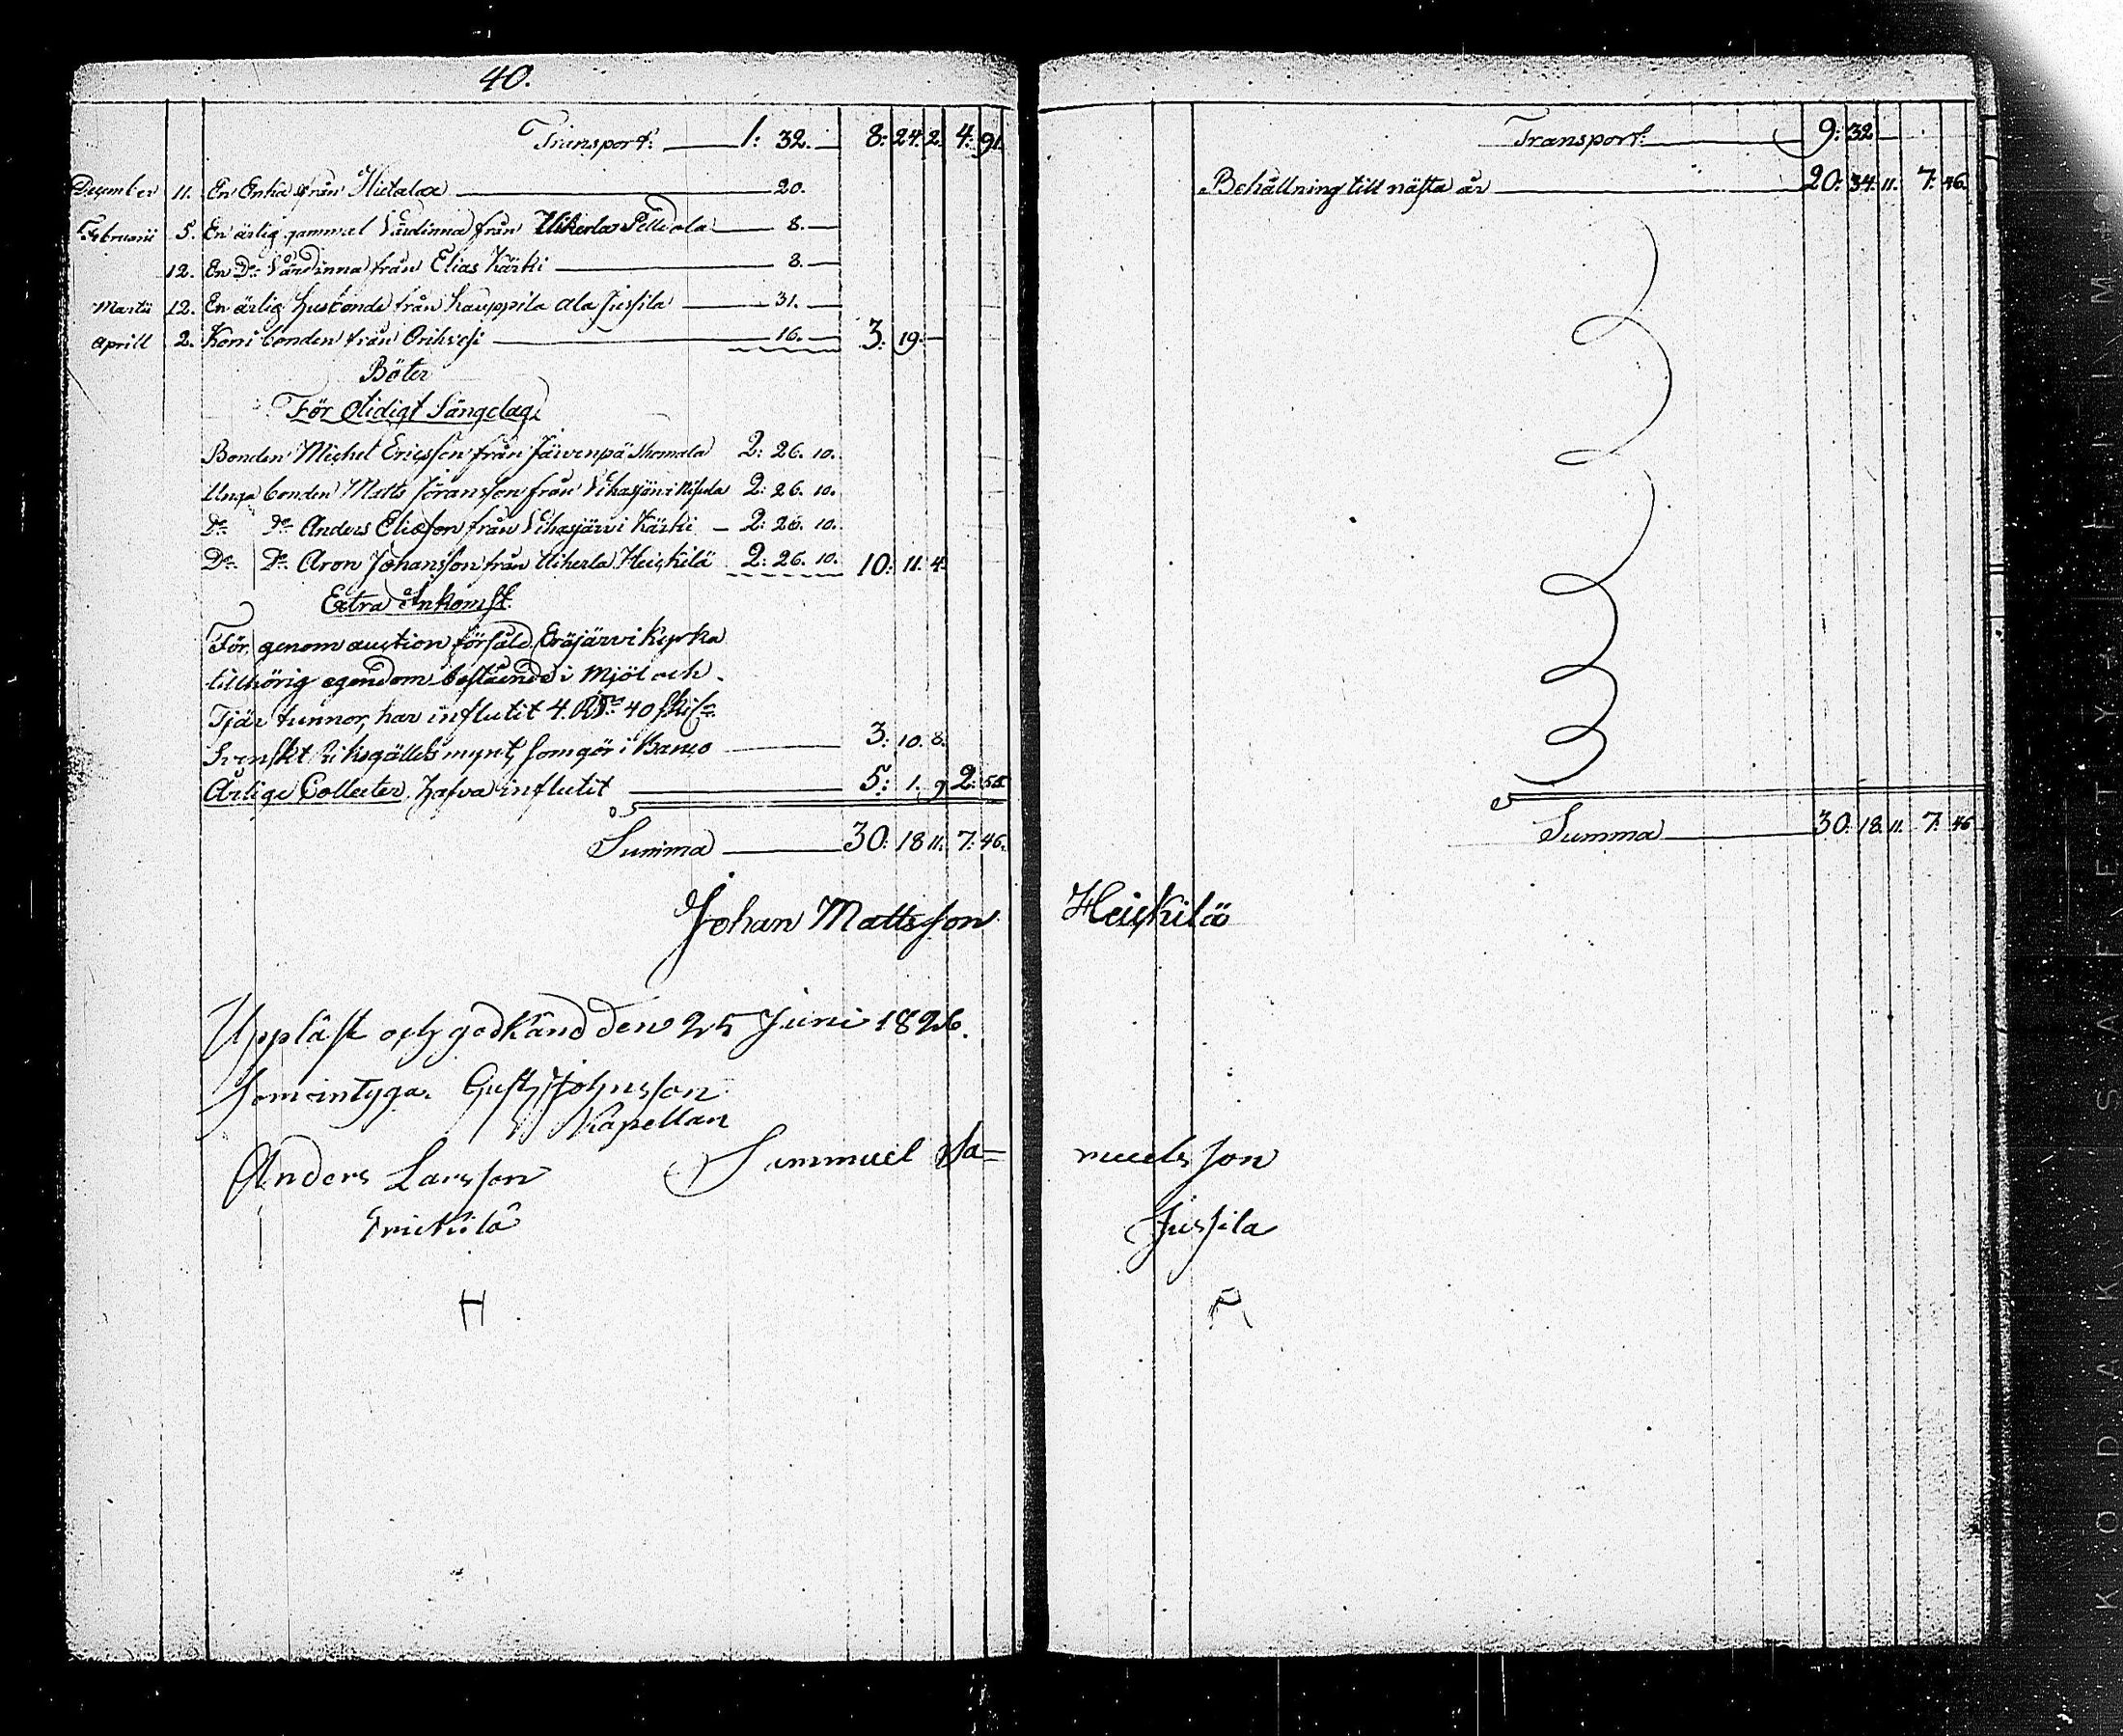 40.
Transport: 1: 32. 8: 24. 2. 4: 91.
December 11. En Enka från Hietala 20.
Februarii 5. En ärlig gammal Värdinna från Uiherla Pelldola 8.
12. En Do Värdinna från Elias Kärki 8.
Martii 12. En ärlig husbonde från Kauppila Ala Jussila 31.
Aprill 2. Korri bonden från Orihvesi 16. 3: 19.
Böter
För Otidigt Sänglag,
Bonden Michel Ericsson från Järvenpä Thomala 2: 26. 10.
Unga bonden Matts Jöransson från Vihasjärvi Nisula 2: 26. 10.
Do Do Anders Eliæson från Vihasjärvi Kärki 2: 26. 10.
Do Do Aron Johansson från Uiherla Heickilä 2: 26. 10. 10: 11. 4.
Extra Inkomst.
För genom auction försåld Eräjärvi Kyrka
tillhörig egendom bestående i Mjöl och
Tjär tunnor, har influtit 4. RDr 40 skil.
Svenskt Riksgälds mynt, som gör i Banco 3: 10. 8.
Årlige Collecter hafva influtit 5: 1. 9 2: 55
Summa 30: 18 11. 7: 46.
Johan Mattsson Heickilä
Uppläst och godkänd den 25 Juni 1826.
Som intygar Gust. Johnsson
Kapellan
Anders Larsson Sammuel Sa=muelsson
Frickilä Jussila
H
Transport: 9: 32
Behållning till nästa år 20: 34. 11. 7: 46.
Summa 30: 18. 11. 7: 46
KODAK SAFETY FILM